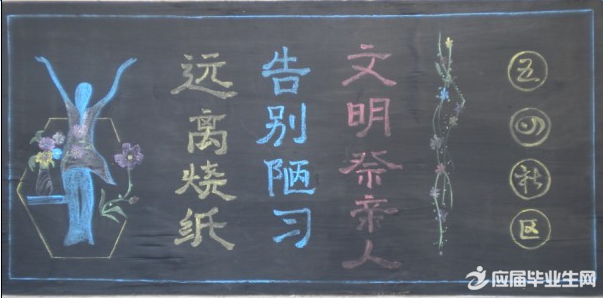 五四社区
文明祭帝人
告别陋习
远离烧纸
应届毕业生网